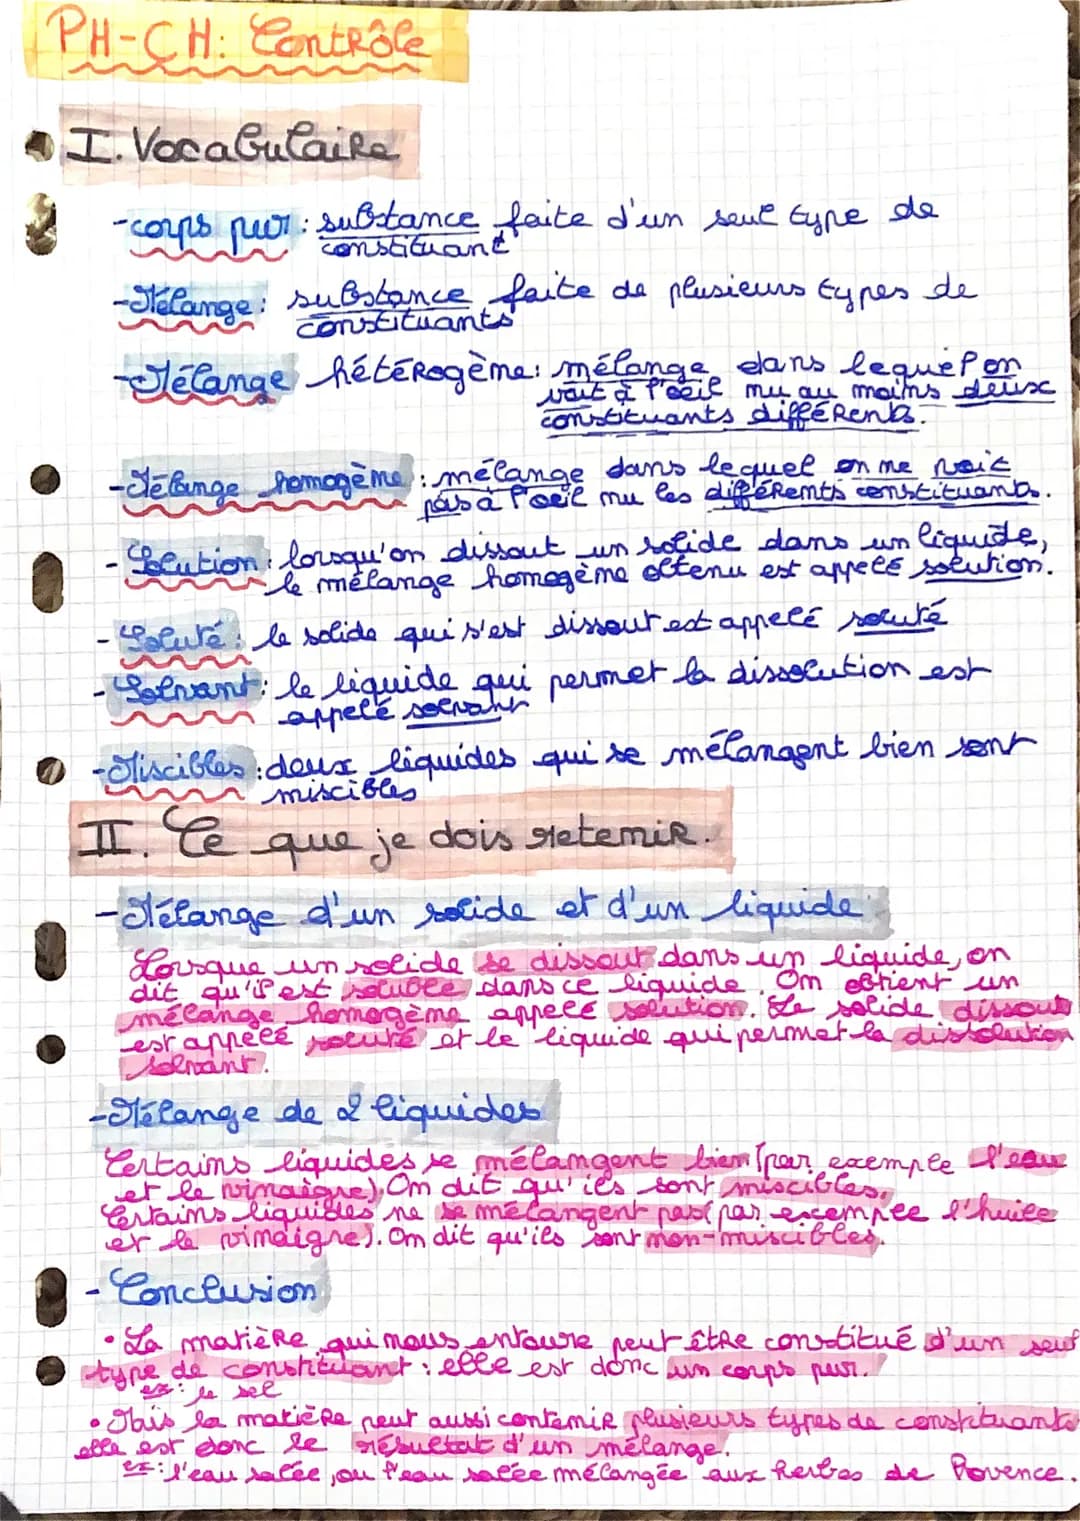 PH-CH: Contrôle
I. Vocabulaire
-corps pur: substance faite d'un seul type de
constituant
-Mélange: substance faite de plusieurs types de
constituants
-Mélange hétérogène: mélange dans lequel on
voit à l'oeil nu au moins deux
constituants différents.
-Mélange homogène: mélange dans lequel on ne voit
pas à l'oeil nu les différents constituants.
- Solution: lorsqu'on dissout un solide dans un liquide,
le mélange homogène obtenu est appelé solution.
- Soluté: le solide qui s'est dissout est appelé soluté
- Solvant: le liquide qui permet la dissolution est
appelé solvant
-Miscibles: deux liquides qui se mélangent bien sont
miscibles
II. Ce que je dois retenir.
-Mélange d'un solide et d'un liquide
Lorsque un solide se dissout dans un liquide, on
dit qu'il est soluble dans ce liquide. On obtient un
mélange homogène appelé solution. Le solide dissout
est appelé soluté et le liquide qui permet la dissolution
solvant.
-Mélange de 2 liquides
Certains liquides se mélangent bien (par exemple l'eau
et le vinaigre). On dit qu'ils sont miscibles.
Certains liquides ne se mélangent pas (par exemple l'huile
et le vinaigre). On dit qu'ils sont non-miscibles.
- Conclusion
• La matière qui nous entoure peut être constitué d'un seul
type de constituant : elle est donc un corps pur.
ex: le sel
• Mais la matière peut aussi contenir plusieurs types de constituants
elle est donc le résultat d'un mélange.
ex: l'eau salée, ou l'eau salée mélangée aux herbes de Provence.